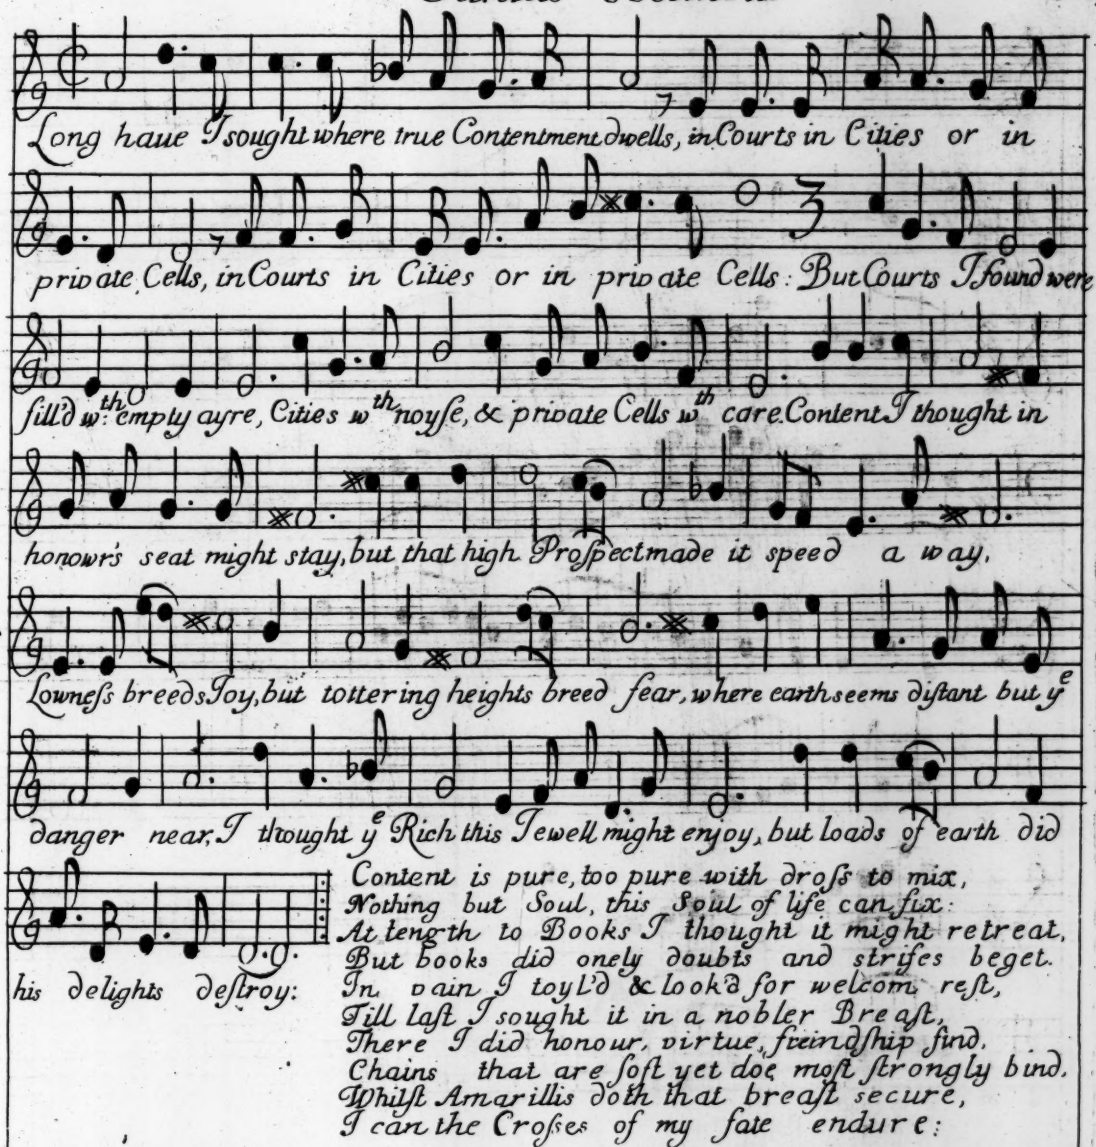 Long haue I sought where true Contentment dwells, in Courts in Cities or in
private Cells, in Courts in Cities or in private Cells: But Courts I found were
fill'd wth: empty ayre, Cities wth noyſe, & private Cells wth care. Content I thought in
honowr's seat might stay, but that high Proſpect made it speed a way,
Lowneſs breeds Ioy, but tottering heights breed fear, where earth seems diſtant but ye
danger near, I thought ye Rich this Iewell might enjoy, but loads of earth did
his delights deſtroy:
Content is pure, too pure with droſs to mix,
Nothing but Soul, this Soul of life can fix:
At length to Books I thought it might retreat,
But books did onely doubts and strifes beget.
In vain I toyl'd & look'd for welcom reſt,
Till laſt I sought it in a nobler Breaſt,
There I did honour, virtue, freindſhip find.
Chains that are ſoft yet doe moſt ſtrongly bind.
Whilſt Amarillis doth that breaſt secure,
I can the Croſses of my fate endure: